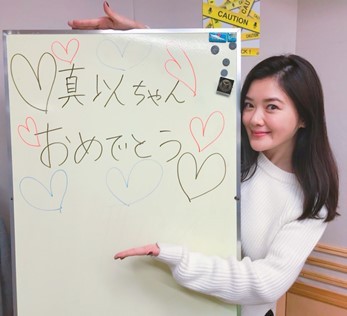 CAUTION
真以ちゃん
おめでとう